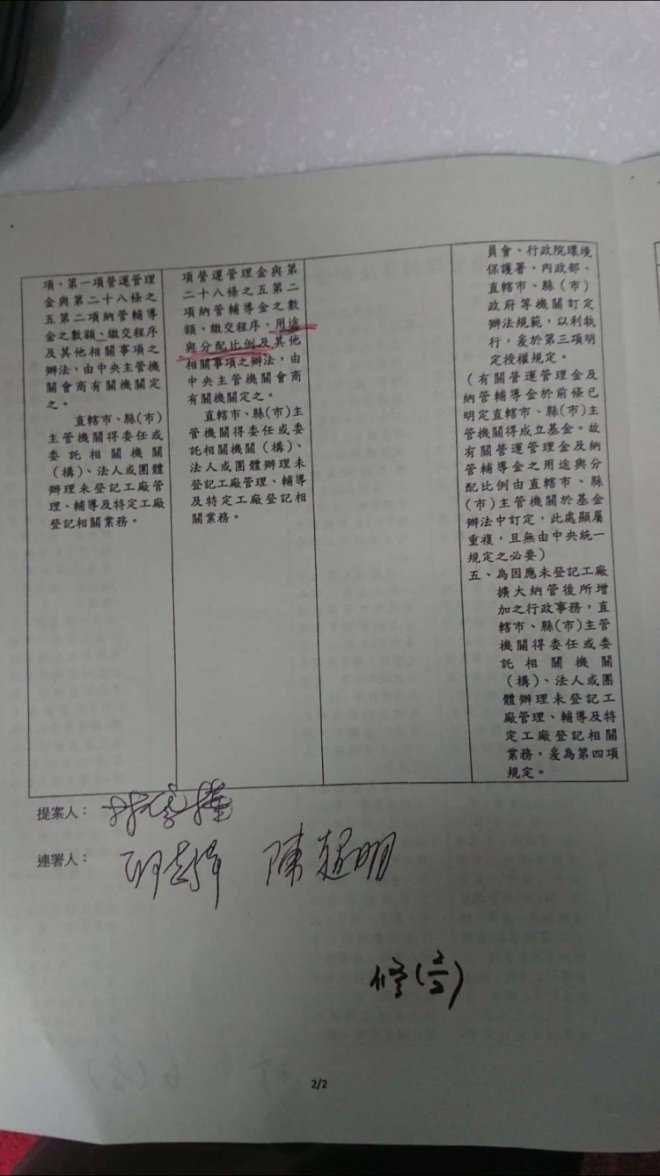 項、第一項營運管理
金與第二十八條之
五第二項納管輔導
金之數額、繳交程序
及其他相關事項之
辦法,由中央主管機
關會商有關機關定
之。
直轄市、縣(市)
主管機關得委任或
委託相關機關
(構)、法人或團體
辦理未登記工廠管
理、輔導及特定工廠
登記相關業務。
項營運管理金與第
二十八條之五第二
項納管輔導金之數
額、繳交程序、用途
與分配比例及其他
相關事項之辦法,由
中央主管機關會商
有關機關定之。
直轄市、縣(市)主
管機關得委任或委
託相關機關(構)、
法人或團體辦理未
登記工廠管理、輔導
及特定工廠登記相
關業務。
員會、行政院環境
保護署、內政部、
直轄市、縣(市)
政府等機關訂定
辦法規範,以利執
行,爰於第三項明
定授權規定。
(有關營運管理金及
納管輔導金於前條已
明定直轄市、縣(市)主
管機關得成立基金。故
有關營運管理金及納
管輔導金之用途與分
配比例由直轄市、縣
(市)主管機關於基金
辦法中訂定,此處顯屬
重複,且無由中央統一
規定之必要)
五、為因應未登記工廠
擴大納管後所增
加之行政事務,直
轄市、縣(市)主管
機關得委任或委
託相關機關
(構)、法人或團
體辦理未登記工
廠管理、輔導及特
定工廠登記相關
業務,爰為第四項
規定。
提案人:
連署人:
陳超明
修(2/2)
2/2